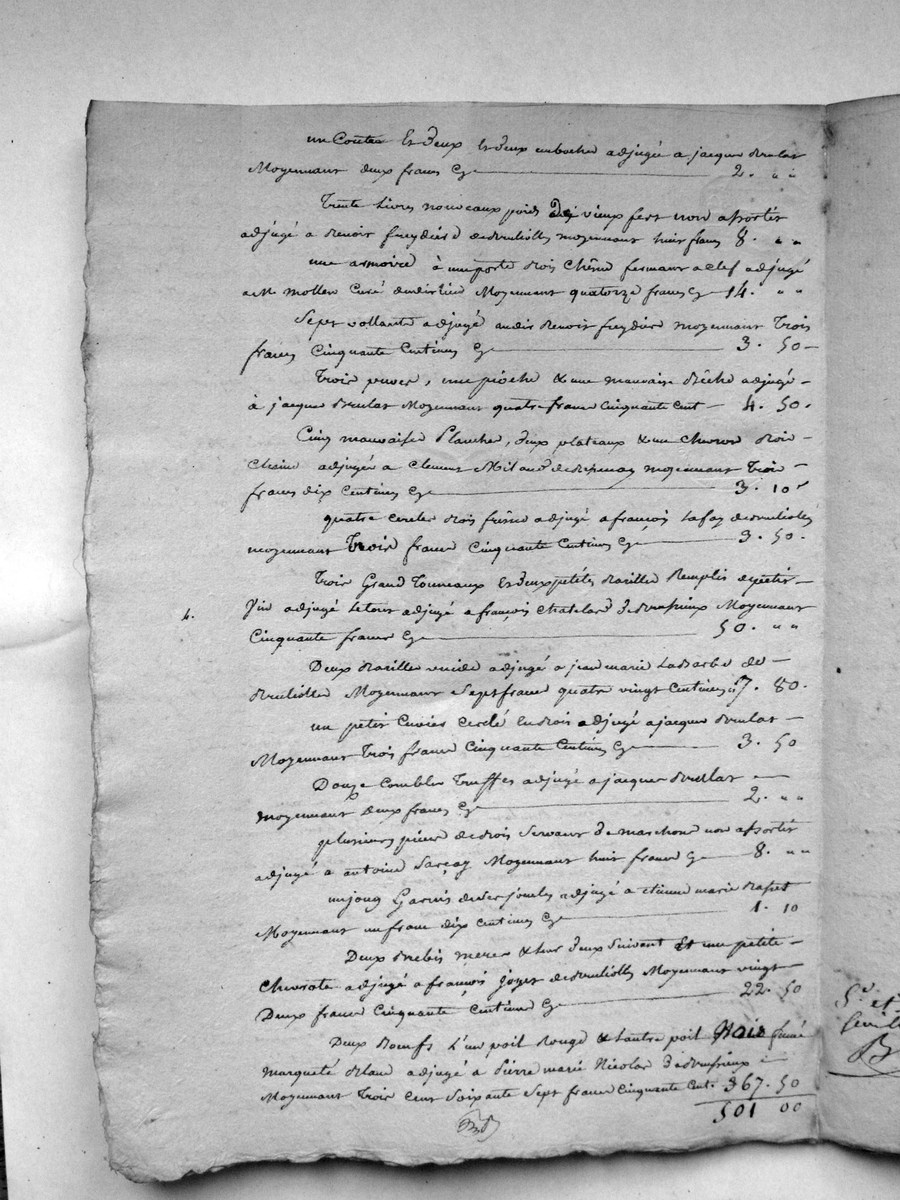 un Couteau Et deux adjugée a jacque Brulas
Moyennant deux francs Cy 2. " "
Trente Livres nouveaux poids De vieux fert non assortis
adjugé a Benoit freydière de Brulliolles moyennant huit francs 8. " "
une armoire à une porte Bois Chêne fermant a clef adjugé
a Mr mollen Curé dudit lieu Moyennant quatorze francs Cy 14. " "
Sept vollants adjugé audit Benoit freydière moyennant Trois
francs Cinquante Centimes Cy 3. 50
Trois , une pioche & une mauvaise Bêche adjugé
à jacque Brulas Moyennant quatre francs Cinquante Cent 4. 50.
Cinq mauvaises Planches, deux plateaux & une Bois
Chaine adjugée a Clement Milaud de moyennant Trois
francs dix Centimes Cy 3. 10
quatre cercles Bois frêne adjugé a françois Lafay de Brulliolles
moyennant Trois francs Cinquante Centimes Cy 3. 50.
Trois Grand Tonneaux Et deux petites Barilles Remplis de petit
4. Vin adjugé Le tout adjugé a françois Chatelard de Brussieux Moyennant
Cinquante francs Cy 50. " "
Deux Barilles vuide adjugé a jean marie Labarbe de
Brulliolles Moyennant Sept francs quatre vingt Centimes Cy 7. 80.
un petit Cuvier Cerclé En Bois adjugé a jacque Brulas
Moyennant Trois francs Cinquante Centimes Cy 3. 50
Douze Combles Truffes adjugé a jacque Brulas
moyennant Deux francs Cy 2. " "
plusieurs pièces de Bois Servant De non assortis
adjugé a antoine Sarçay Moyennant huit francs Cy 8. " "
un joug Garnis de ses joucles adjugé a Etienne marie
Moyennant un franc dix Centimes Cy 1. 10
Deux Brebis meres & leur deux Suivant Et une petite
Chevrote adjugé a françois de Brulliolles Moyennant vingt
Deux francs Cinquante Centimes Cy 22. 50
Deux Boeufs L'un poil Rouge & L'autre poil Noir foncé
marqueté Blanc adjugé à Pierre marie Nicolas De Brussieux
Moyennant Trois Cent Soixante Sept francs Cinquante Cente 367. 50
501 00